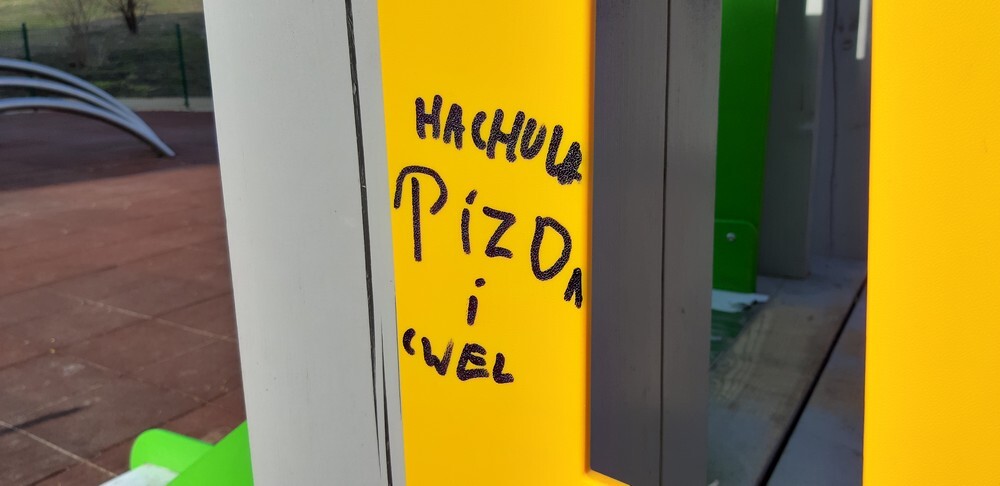 HACHULA
PizDA
i
CWEL